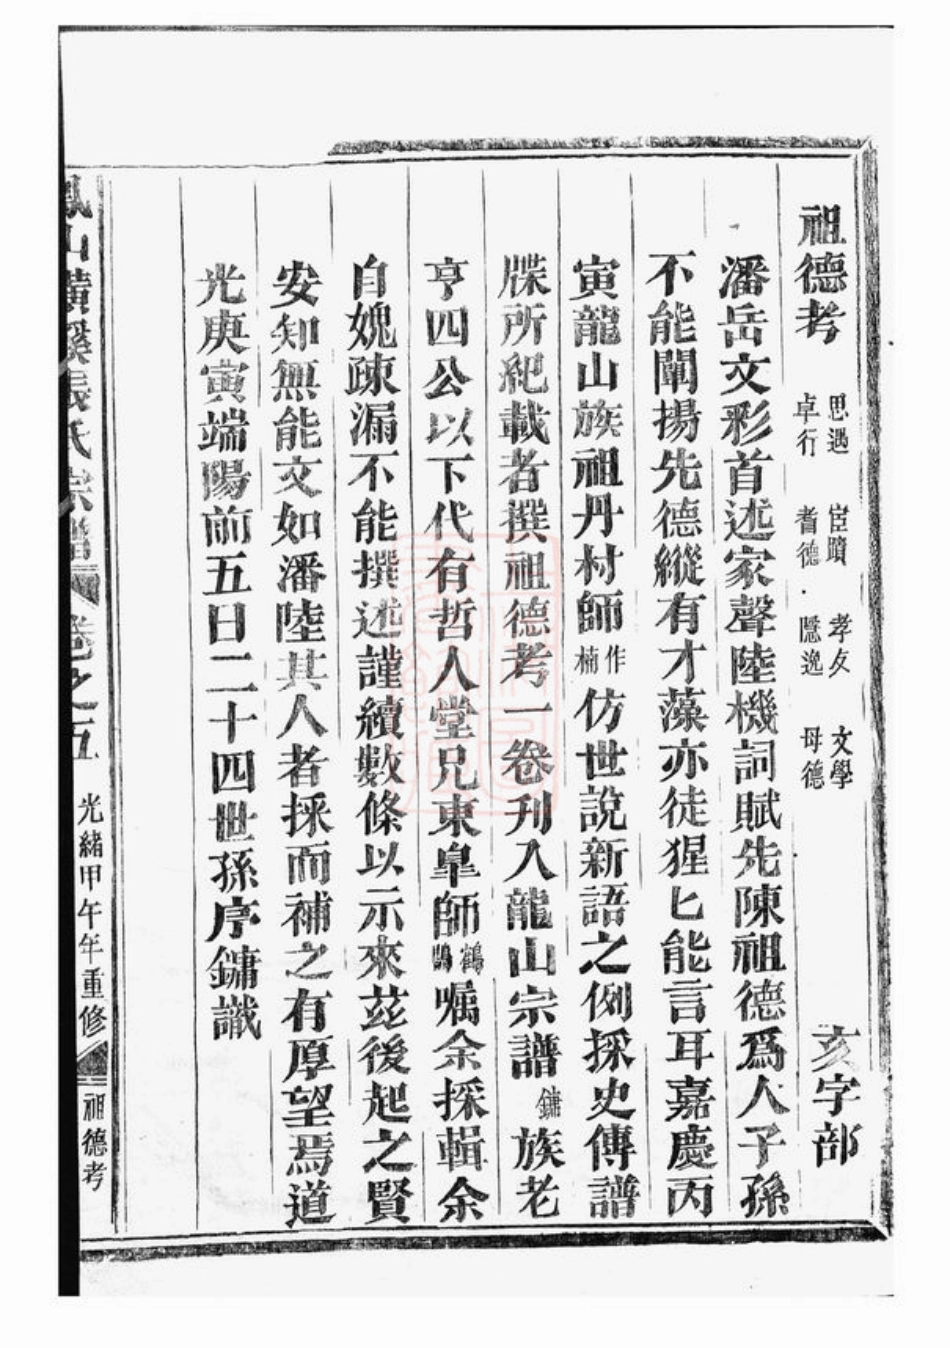 祖德考 思遇 宦蹟 孝友 文學 卓行 耆德 隱逸 母德 亥字部
潘岳文彩首述家聲陸機詞賦先陳祖德爲人子孫
不能闡揚先德縱有才藻亦徒猩匕能言耳嘉慶丙
寅龍山族祖丹村師作楠仿世說新語之例採史傳譜
牒所紀載者撰祖德考一卷刊入龍山宗譜鏞族老
亨四公以下代有哲人堂兄東皐師鶴鵾嘱余採輯余
自媿疎漏不能撰述謹續數條以示來茲後起之賢
安知無能文如潘陸其人者採而補之有厚望焉道
光庚寅端陽前五日二十四世孫序鏞識
鳳山橫溪張氏宗譜 卷之五 光緒甲午年重修 祖德考